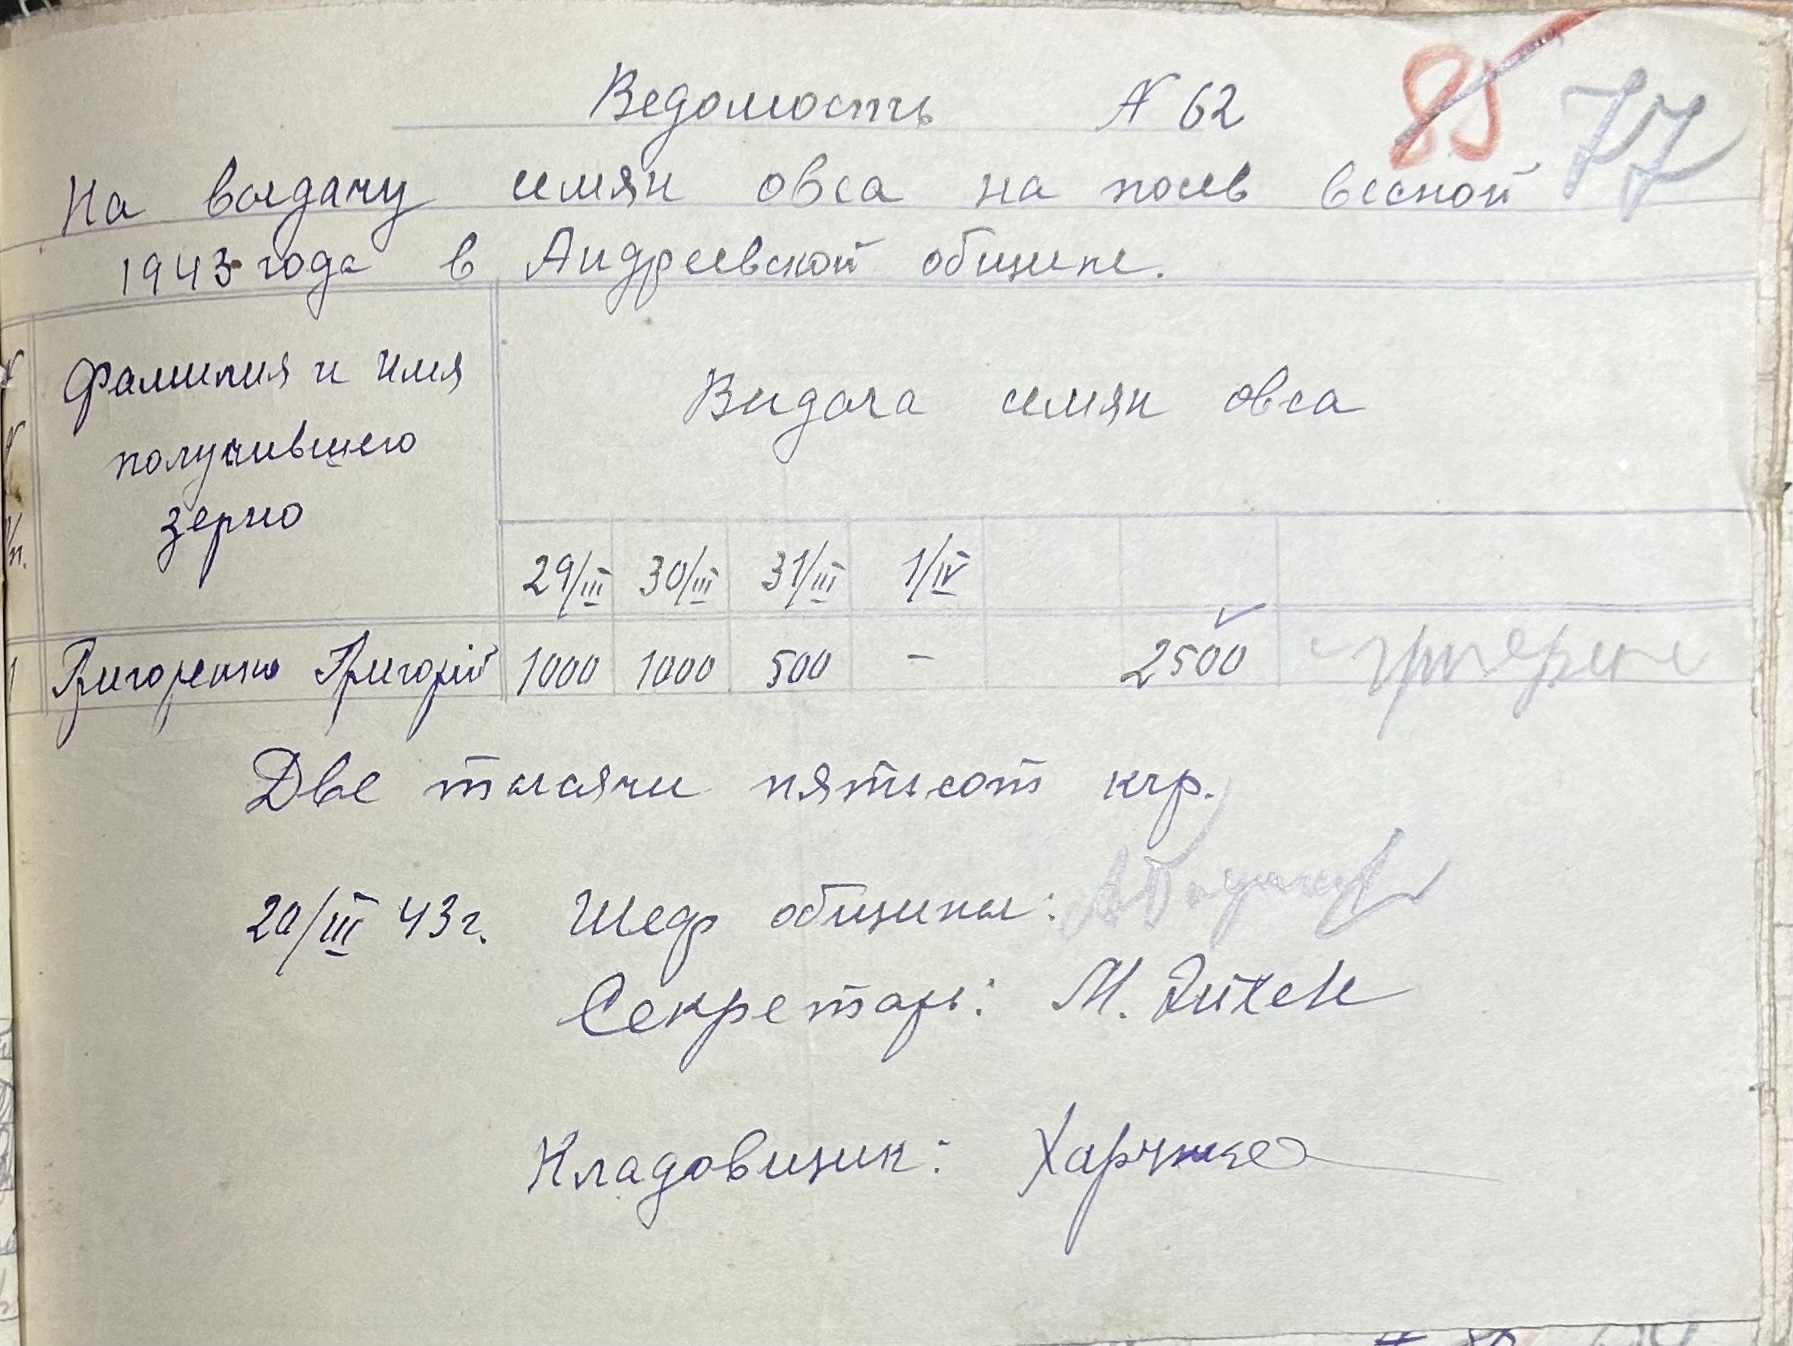 85 77
Ведомость № 62
На выдачу семян овса на посев весной
1943 года в Андреевской общине.
№ № п/п. Фамилия и имя получившего зерно Видача семян овса
29/III 30/III 31/III 1/IV
1 Григоренко Григорій 1000 1000 500 – 2500
Две тысячи пятьсот кгр.
20/III 43 г. Шеф общины:
Секретарь: M.
Кладовщик: Харченко